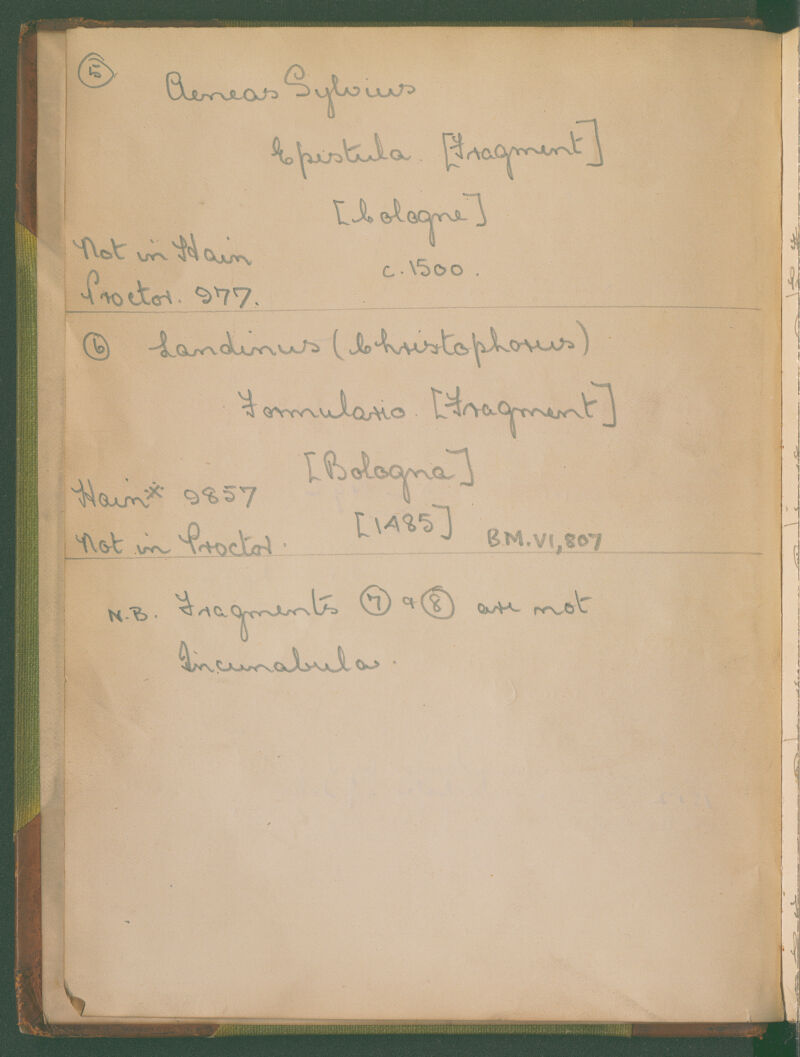 5 Aeneas Sylvius
Epistula. [Fragment]
[Cologne]
Not in Hain
c. 1500.
Proctor. 977.
6 Landinus (Christophorus)
Formulario. [Fragment]
[Bologna]
Hain* 9857
[1485] B.M. VI, 807
Not in Proctor.
N.B. Fragments 7 & 8 are not
Incunabula.